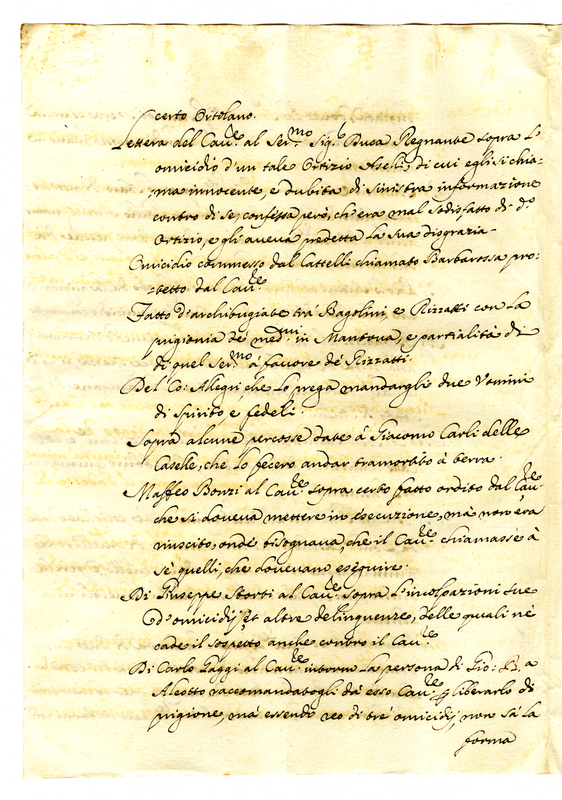 certo Ortolano.
Lettera del Cau.re al Ser.mo Sig.r Duca Regnante sopra l'
omicidio d'un tale Ortizio Aselli, di cui egli si chia-
ma innocente, e dubita di sinistra informazione
contro di se, confessa però, ch'era mal sodisfatto di d.o
Ortizio, e gli aveva predetta la sua disgrazia-
Omicidio commesso dal Cattelli chiamato Barbarossa pro-
tetto dal Cau.re
Fatto d'archibugiate trà Bagolini, e Rizzatti con la
prigionia de med.mi in Mantova, e partialità di
di quel Ser.mo à favore de' Rizzatti.
Del Co: Allegri, che lo prega mandargli due Uomini
di spirito e fedeli.
Sopra alcune percosse date à Giacomo Carli delle
Caselle, che lo fecero andar tramortito à terra.
Maffeo Bonzi al Cau.re sopra certo fatto ordito dal Cau.re
che si doveva mettere in esecuzione, mà non era
riuscito, onde bisognava, che il Cau.re chiamasse à
sè quelli, che dovevano eseguire.
Di Giuseppe Storti al Cau.re sopra l'incolpazioni sue
d'omicidij, et altre delinquenze, delle quali nè
cade il sospetto anche contro il Cau.re
Di Carlo Gaggi al Cau.re intorno la persona di Gio: B.a
Aleotto raccomandatogli dà esso Cau.re p liberarlo di
prigione, mà essendo reo di trè omicidij, non sà la
forma